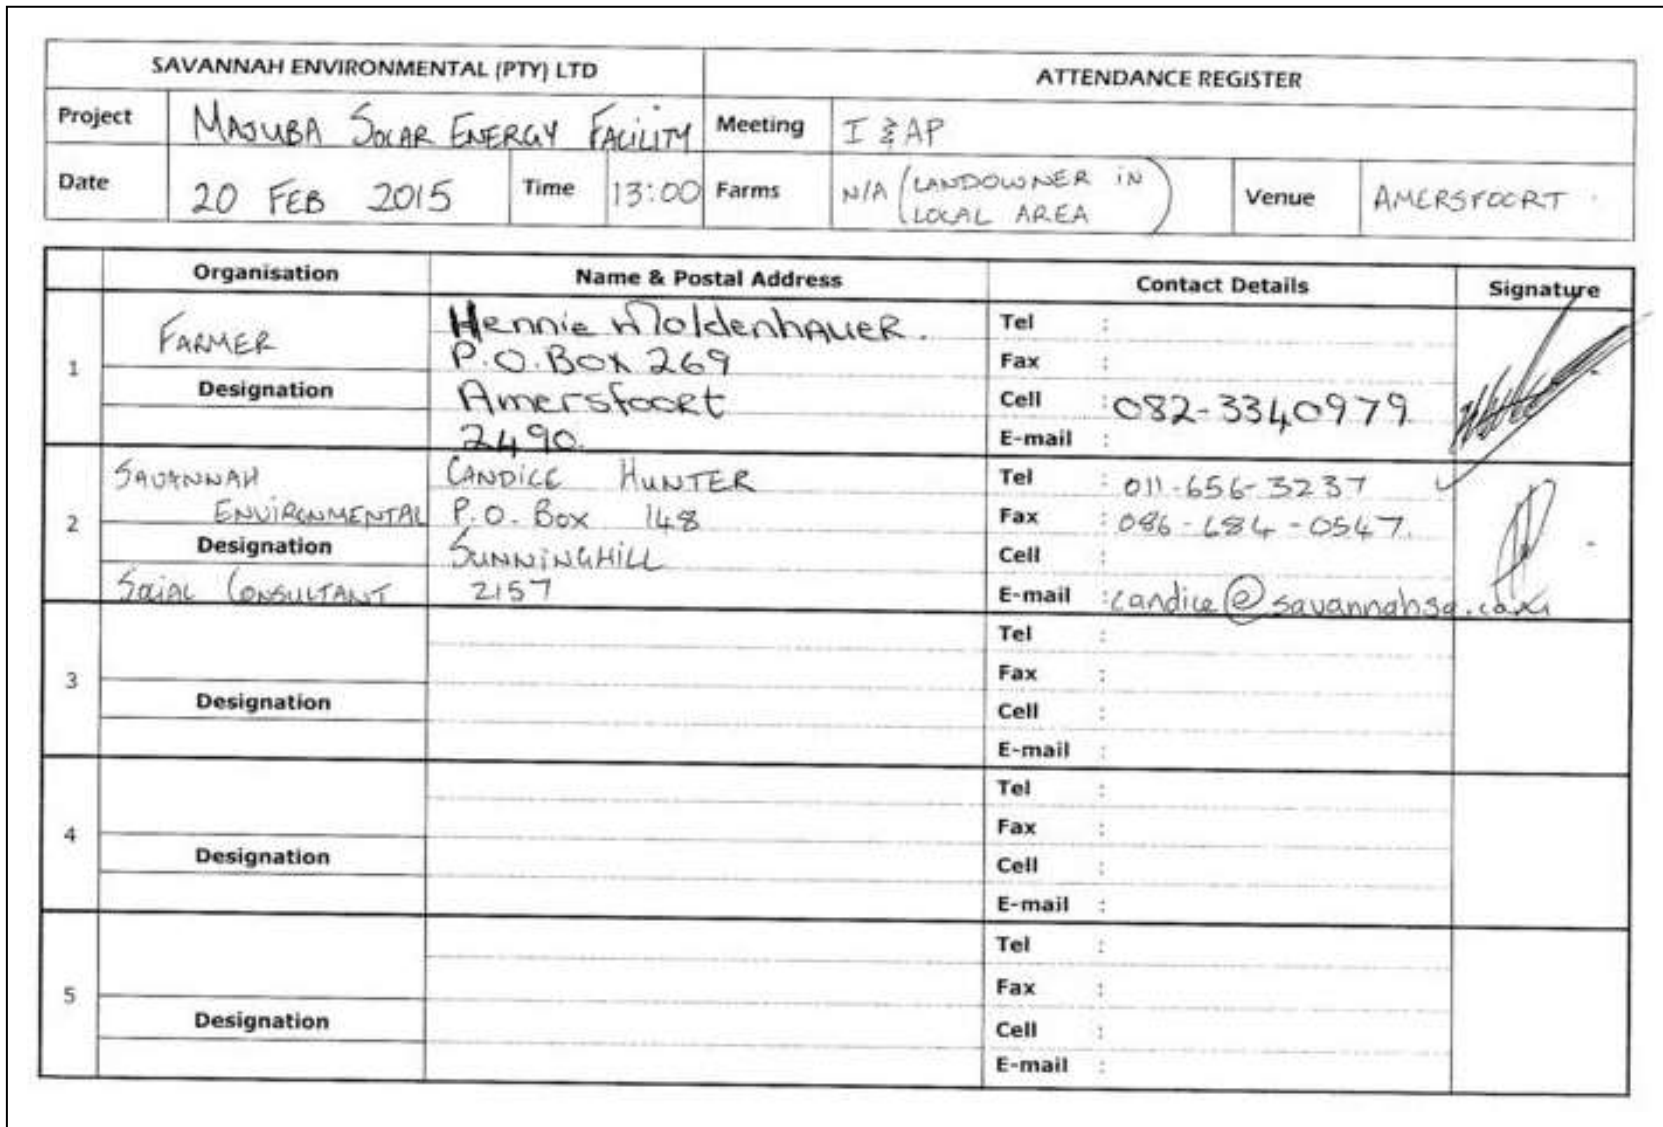 SAVANNAH ENVIRONMENTAL (PTY) LTD
ATTENDANCE REGISTER
Project MAJUBA SOLAR ENERGY FACILITY Meeting I & AP
Date 20 FEB 2015 Time 13:00 Farms N/A (LANDOWNER IN LOCAL AREA) Venue AMERSFOORT
Organisation Name & Postal Address Contact Details Signature
1
FARMER
Designation
Hennie Moldenhauer.
P.O.Box 269
Amersfoort
2490.
Tel :
Fax :
Cell : 082-3340979
E-mail :
2
SAVANNAH
ENVIRONMENTAL
Designation
SOCIAL CONSULTANT
CANDICE HUNTER
P.O. Box 148
SUNNINGHILL
2157
Tel : 011-656-3237
Fax : 086-684-0547.
Cell :
E-mail : candice@savannahsa.com
3
Designation
Tel :
Fax :
Cell :
E-mail :
4
Designation
Tel :
Fax :
Cell :
E-mail :
5
Designation
Tel :
Fax :
Cell :
E-mail :